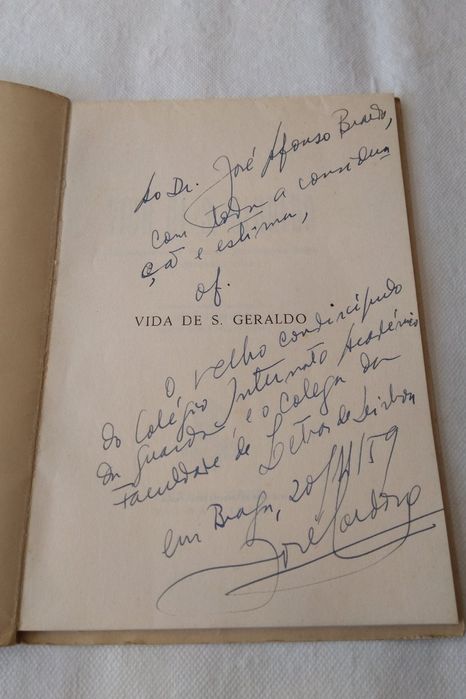 Ao Dr. José Afonso
com toda a considera
ção e estima,
of.
VIDA DE S. GERALDO
O velho condiscípulo
do Colégio Internato Académico
da Guarda, e o colega da
Faculdade de Letras de Lisboa
em Braga, 20/ /59
José Cardoso